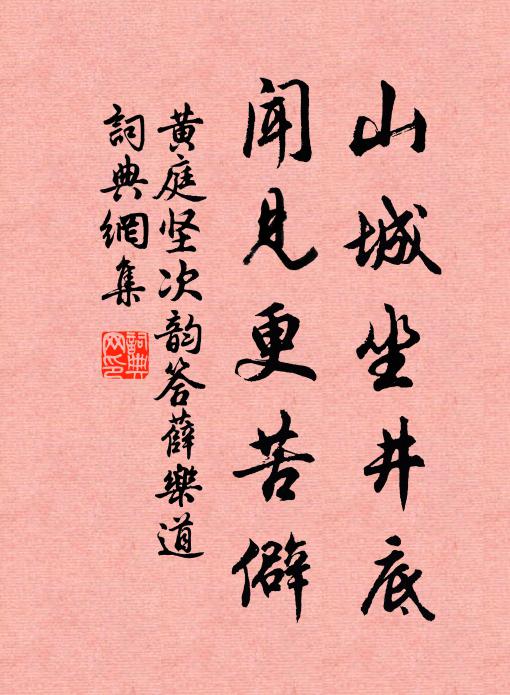 山城坐井底
闻见更苦僻
黄庭坚次韵答薛樂道
詞典網集
詞典網印